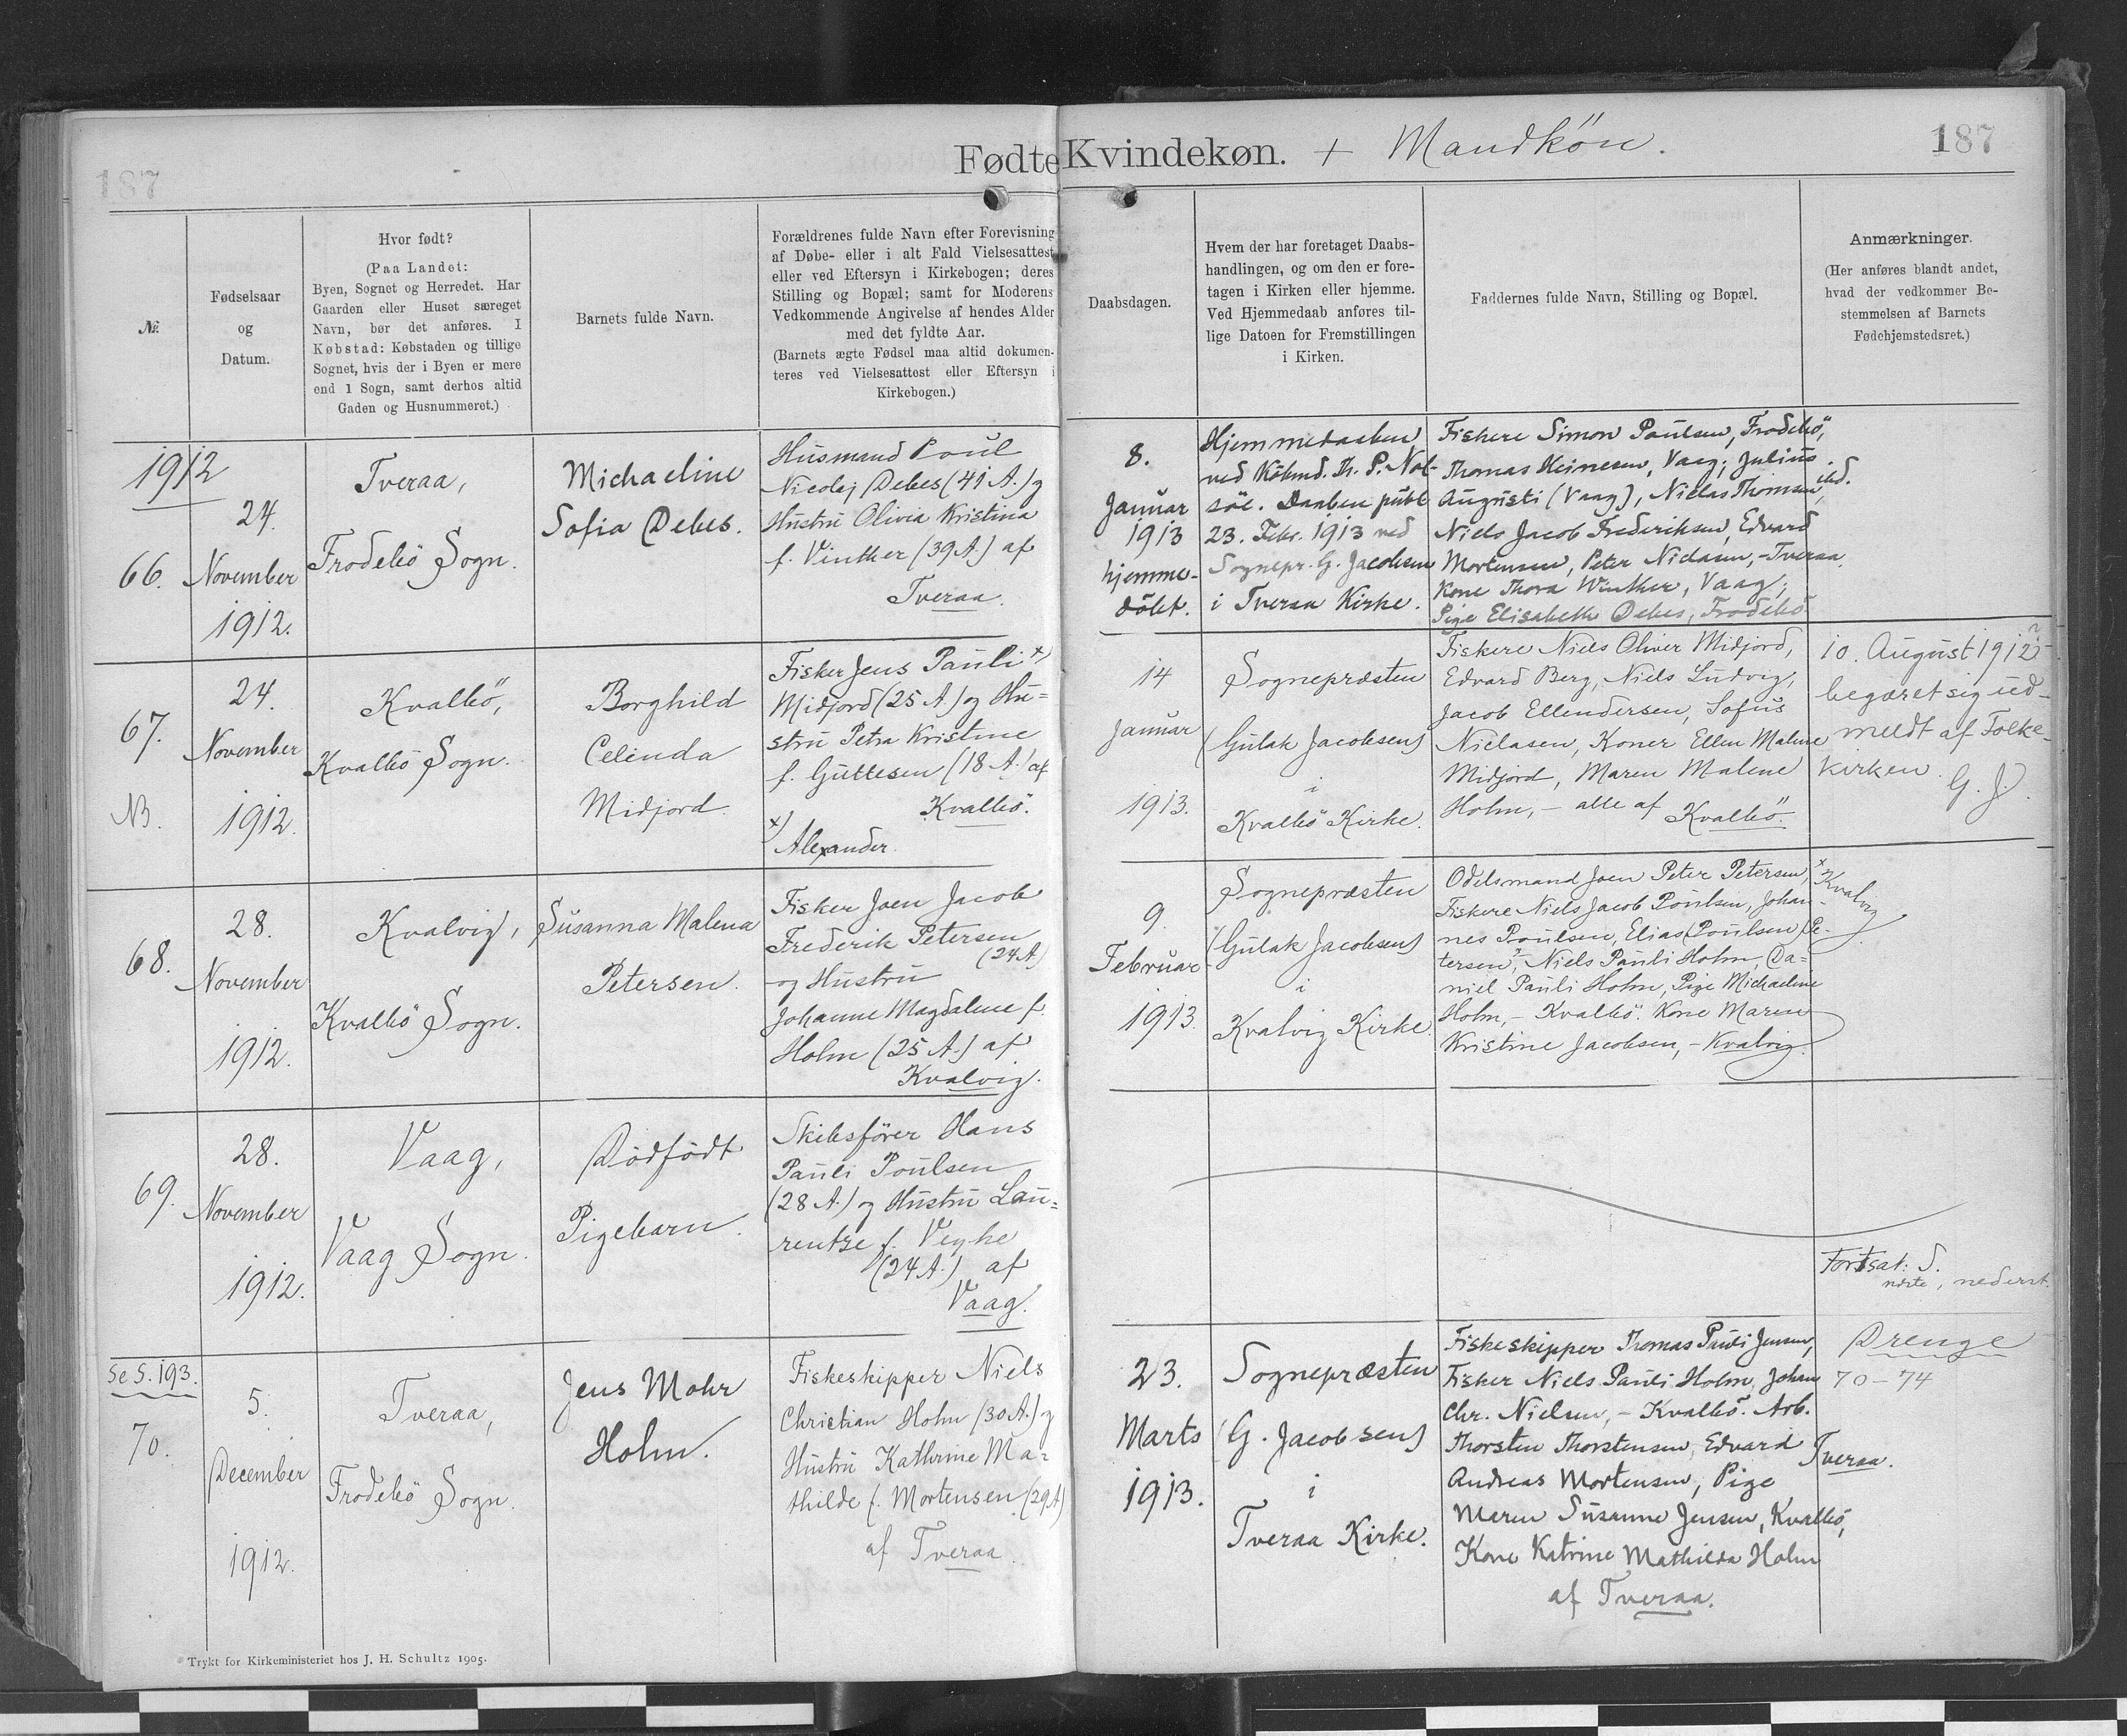 187
Fødte Kvindekøn. + Mandkön.
187
№.
Fødselsaar
og
Datum.
Hvor født?
(Paa Landet:
Byen, Sognet og Herredet. Har
Gaarden eller Huset særeget
Navn, bør det anføres. I
Købstad: Købstaden og tillige
Sognet, hvis der i Byen er mere
end 1 Sogn, samt derhos altid
Gaden og Husnummeret.)
Barnets fulde Navn.
Forældrenes fulde Navn efter Forevisning
af Døbe- eller i alt Fald Vielsesattest
eller ved Eftersyn i Kirkebogen; deres
Stilling og Bopæl; samt for Moderens
Vedkommende Angivelse af hendes Alder
med det fyldte Aar.
(Barnets ægte Fødsel maa altid dokumen-
teres ved Vielsesattest eller Eftersyn i
Kirkebogen.)
Daabsdagen.
Hvem der har foretaget Daabs-
handlingen, og om den er fore-
tagen i Kirken eller hjemme.
Ved Hjemmedaab anføres til-
lige Datoen for Fremstillingen
i Kirken.
Faddernes fulde Navn, Stilling og Bopæl.
Anmærkninger.
(Her anføres blandt andet,
hvad der vedkommer Be-
stemmelsen af Barnets
Fødehjemstedsret.)
1912
66.
24.
November
1912.
Tveraa,
Frodebö Sogn.
Michaeline
Sofia Debes.
Husmand Poul
Nicolej Debes (41 A.) og
Hustru Olivia Kristina
f. Vinther (39 A.) af
Tveraa.
8.
Januar
1913
hjemme-
döbt.
Hjemmedaaben
ved Köbmd. Th. P. Nol-
söe. Daaben publ
23. Febr. 1913 ved
Sognepr. G. Jacobsen
i Tveraa Kirke.
Fiskere Simon Paulsen, Frodebö,
Thomas Heinesen, Vaag, Julius
Augusti (Vaag), Niclas Thomsen, ibd.
Niels Jacob Frederiksen, Edvard
Mortensen, Peter Niclasen, - Tveraa.
Kone Thora Winther, Vaag;
Pige Elisabeth Debes, Frodebö
67.
NB.
24.
November
1912.
Kvalbö,
Kvalbö Sogn.
Borghild
Celinda
Midjord.
Fisker Jens Pauli x)
Midjord (25 A.) og Hu=
stru Petra Kristine
f. Guttesen (18 A.) af
Kvalbö.
x)
Alexander.
14
Januar
1913.
Sognepræsten
(Gulak Jacobsen)
i
Kvalbö Kirke.
Fiskere Niels Oliver Midjord,
Edvard Berg, Niels Ludvig,
Jacob Ellendersen, Sofus
Niclasen, Koner Ellen Malene
Midjord, Maren Malene
Holm, - alle af Kvalbö.
10. August 1912 ?
begæret sig ud-
meldt af Folke-
kirken.
G. J.
68.
28.
November
1912.
Kvalvig,
Kvalbö Sogn.
Susanna Malena
Petersen.
Fisker Joen Jacob
Frederik Petersen
(24 A)
og Hustru
Johanne Magdalene f.
Holm (25 A.) af
Kvalvig.
9.
Februar
1913.
Sognepræsten
(Gulak Jacobsen)
i
Kvalvig Kirke.
Odelsmand Joen Peter Petersen, x Kvalvig
Fiskere Niels Jacob Poulsen, Johan-
nes Poulsen, Elias (Poulsen) Pe-
tersen, Niels Pauli Holm, Da=
niel Pauli Holm, Pige Michaeline
Holm, - Kvalbö. Kone Maren
Kristine Jacobsen, - Kvalvig.
69.
28.
November
1912.
Vaag,
Vaag Sogn.
Dödfödt
Pigebarn.
Skibsförer Hans
Pauli Poulsen
(28 A.) og Hustru Lau=
rentze f. Veyhe
(24 A.) af
Vaag.
Fortsat: S.
næste, nederst.
Se S. 193.
70.
5.
December
1912.
Tveraa,
Frodebö Sogn.
Jens Mohr
Holm.
Fiskeskipper Niels
Christian Holm (30 A.) og
Hustru Kathrine Ma=
thilde f. Mortensen (29 A)
af Tveraa.
23.
Marts
1913.
Sognepræsten
(G. Jacobsen)
i
Tveraa Kirke.
Fiskeskipper Thomas Pauli Jensen,
Fisker Niels Pauli Holm, Johan
Chr. Nielsen, - Kvalbö. Arb.
Thorsten Thorstensen, Edvard
Andreas Mortensen, Pige Tveraa.
Maren Susanne Jensen, Kvalbö,
Kone Katrine Mathilda Holm
af Tveraa.
Drenge
70 - 74
Trykt for Kirkeministeriet hos J. H. Schultz 1905.